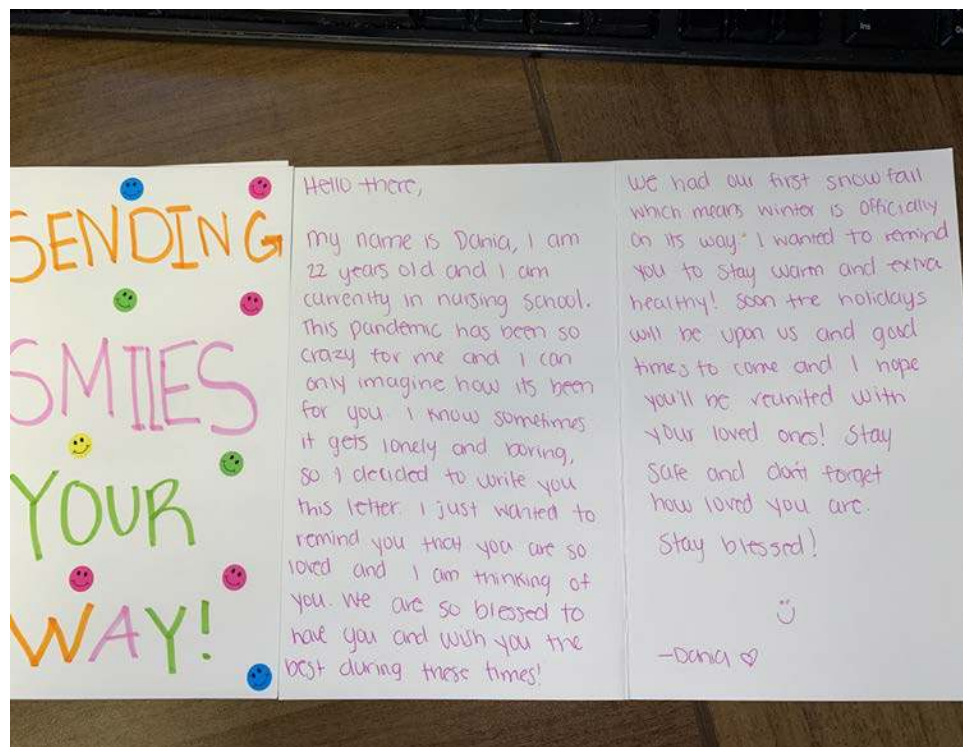 SENDING
SMILES
YOUR
WAY!
Hello there,
my name is Dania, I am
22 years old and I am
currently in nursing school.
This pandemic has been so
crazy for me and I can
only imagine how its been
for you. I know sometimes
it gets lonely and boring,
so I decided to write you
this letter. I just wanted to
remind you that you are so
loved and I am thinking of
you. We are so blessed to
have you and wish you the
best during these times!
We had our first snow fall
which means winter is officially
on its way. I wanted to remind
you to stay warm and extra
healthy! Soon the holidays
will be upon us and good
times to come and I hope
you'll be reunited with
your loved ones! Stay
safe and don't forget
how loved you are.
Stay blessed!
-Dania
Ins